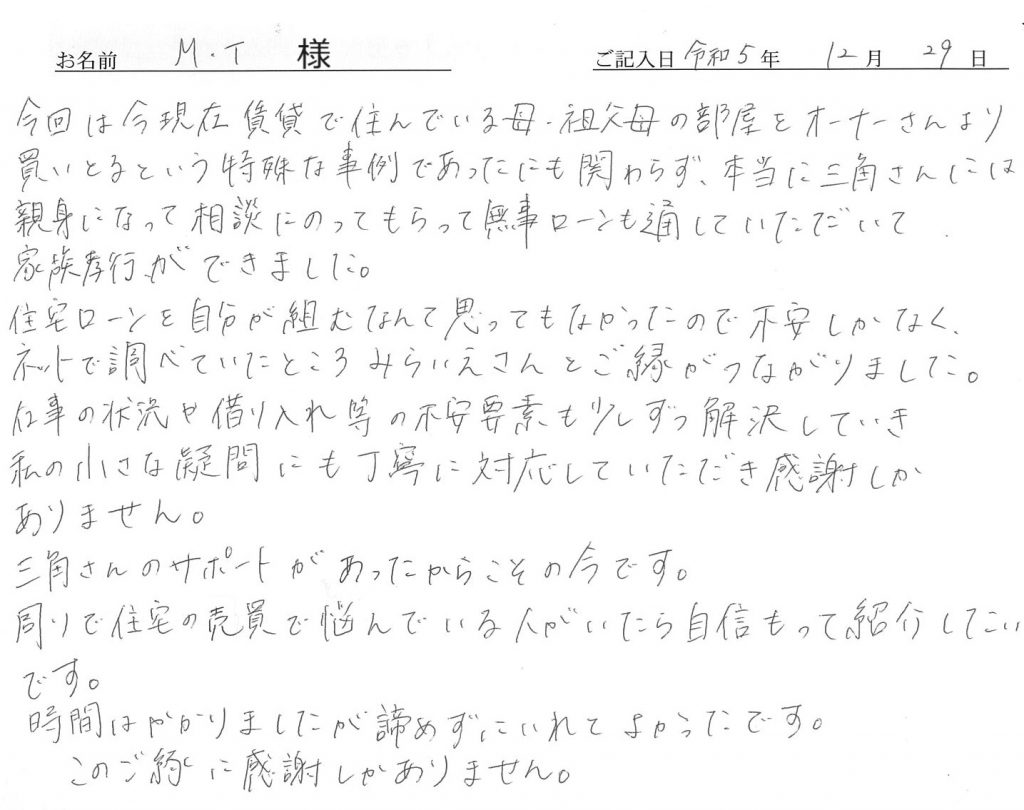 お名前 M.T 様 ご記入日 令和5年 12月 29日
今回は今現在賃貸で住んでいる母・祖父母の部屋をオーナーさんより
買いとるという特殊な事例であったにも関わらず、本当に三角さんには
親身になって相談にのってもらって無事ローンも通していただいて
家族孝行ができました。
住宅ローンを自分が組むなんて思ってもなかったので不安しかなく、
ネットで調べていたところみらいえさんとご縁がつながりました。
仕事の状況や借り入れ等の不安要素も少しずつ解決していき
私の小さな疑問にも丁寧に対応していただき感謝しか
ありません。
三角さんのサポートがあったからこその今です。
周りで住宅の売買で悩んでいる人がいたら自信もって紹介したい
です。
時間はかかりましたが諦めずにいれてよかったです。
このご縁に感謝しかありません。